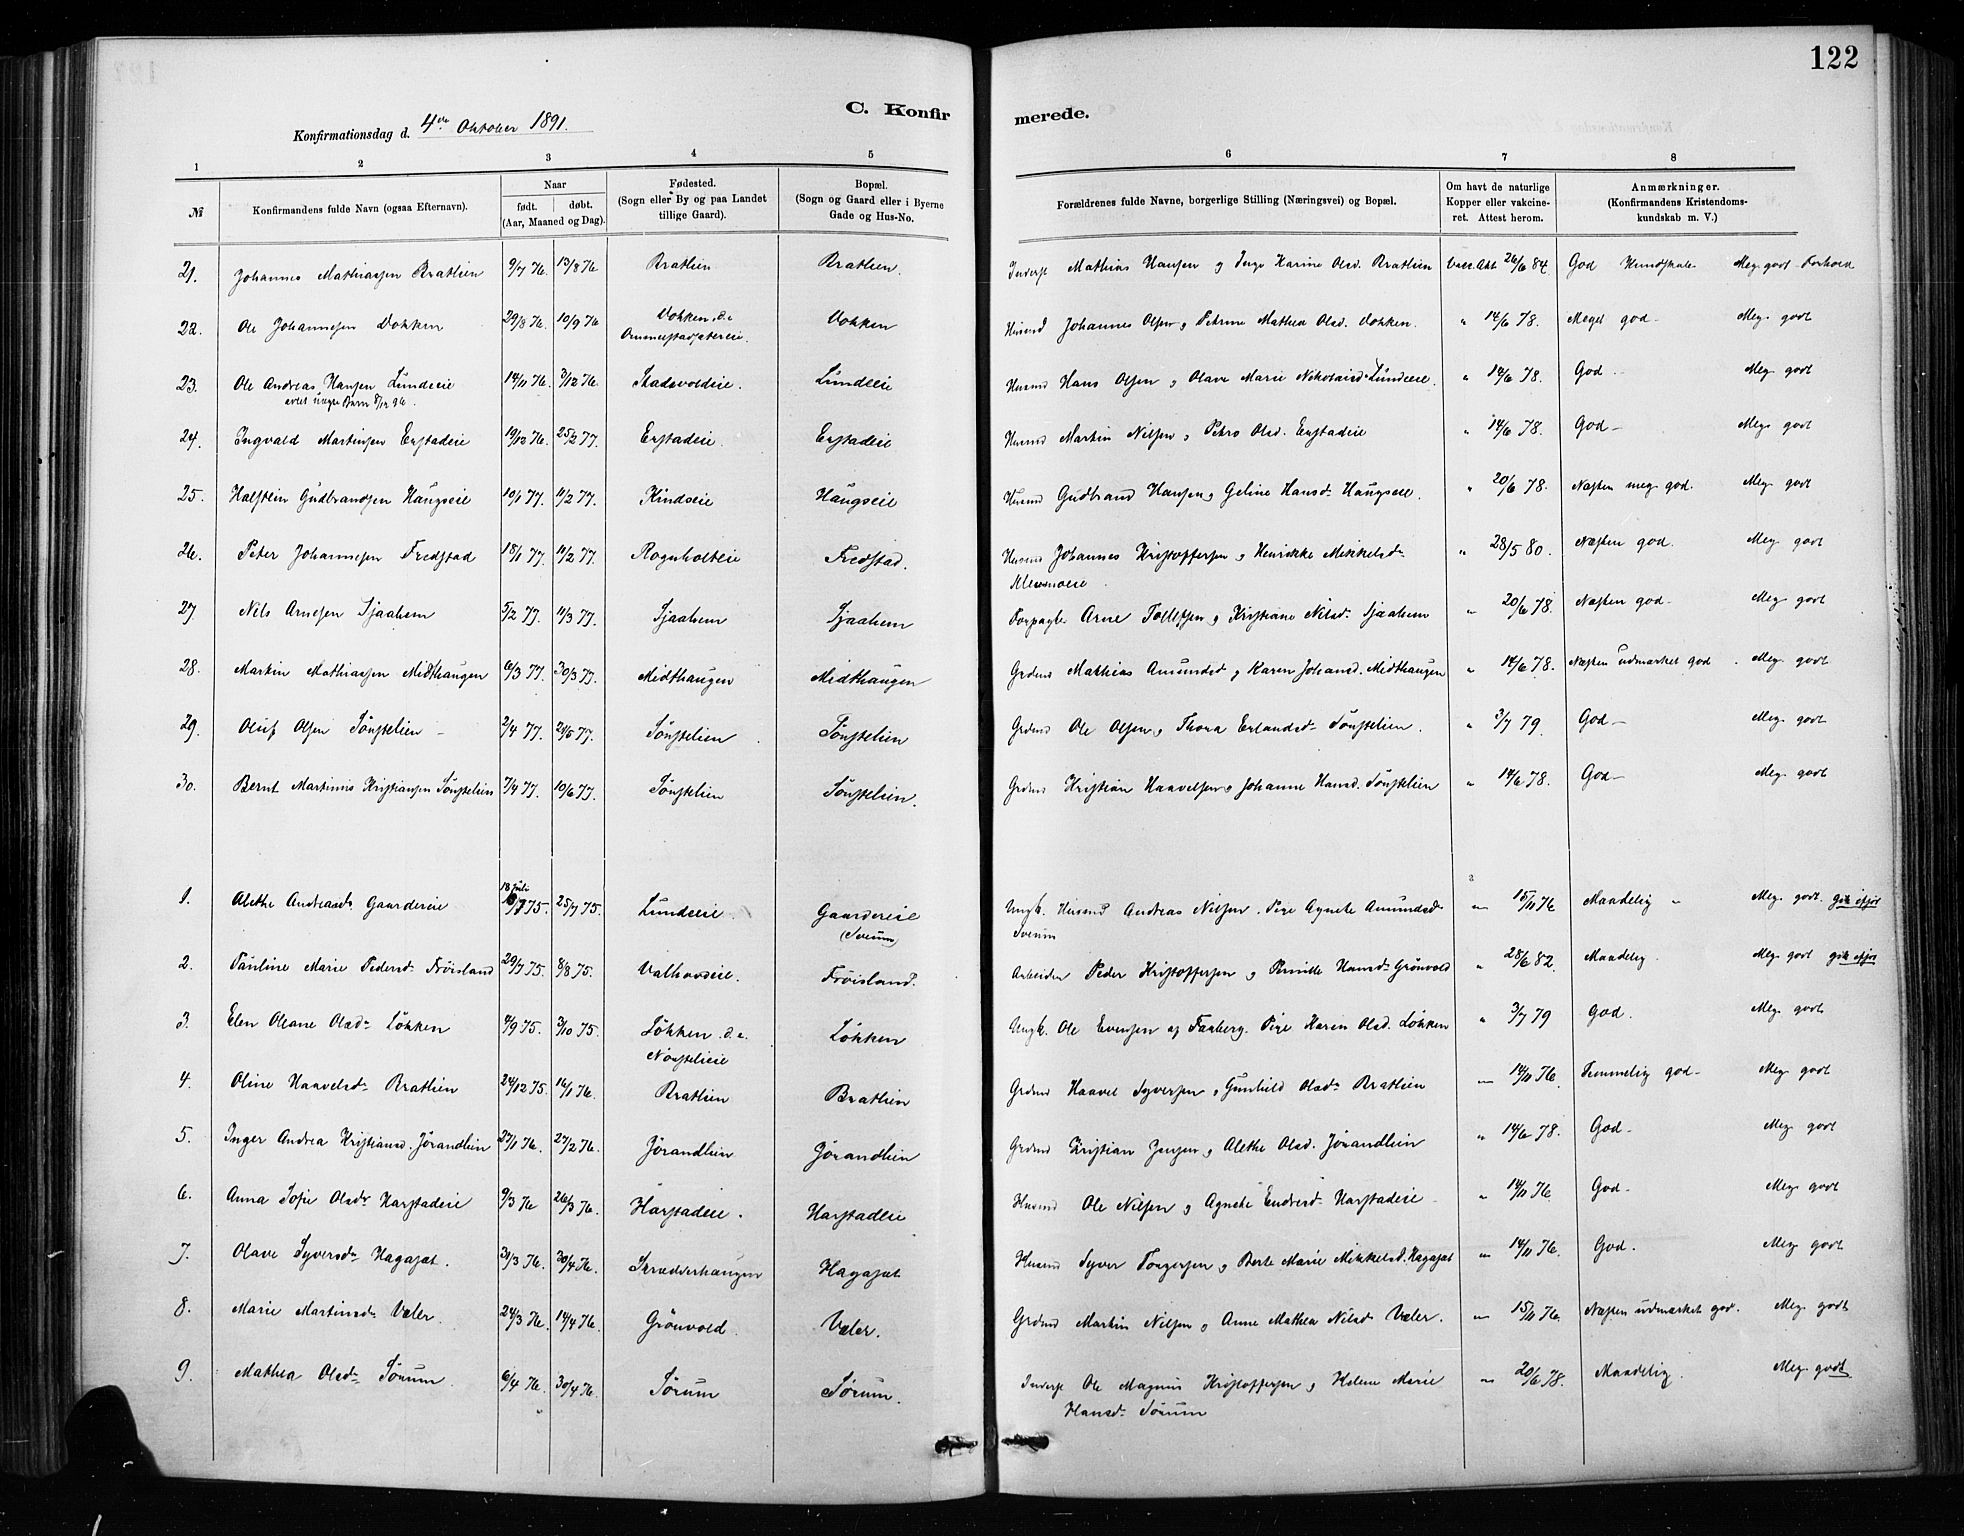 122
C. Konfirmerede.
Konfirmationsdag d. 4de Oktober 1891.
1 2 3 4 5 6 7 8
№ Konfirmandens fulde Navn (ogsaa Efternavn). Naar født. døbt. (Aar, Maaned og Dag). Fødested. (Sogn eller By og paa Landet tillige Gaard). Bopæl. (Sogn og Gaard eller i Byerne Gade og Hus-No. Forældrenes fulde Navne, borgerlige Stilling (Næringsvei) og Bopæl. Om havt de naturlige Kopper eller vakcineret. Attest herom. Anmærkninger. (Konfirmandens Kristendomskundskab m. V.)
21. Johannes Mathiassen Bratlien 9/7 76. 13/8 76 Bratlien Bratlien. Inderst Mathias Hansen og Inge Karine Olsd. Bratlien Vacc. Att 26/6 84 God Kundskab Meg. godt Forhold
22. Ole Johannesen Dokken 29/8 76. 10/9 76 Dokken Dokken Husmd Johannes Olsen og Petrine Mathea Olsd. Dokken. " 14/6 78. Meget god Meg. godt
23. Ole Andreas Hansen Lundeeie 14/11 76. 3/12 76. Skadsvoldeie. Lundeeie Husmd Hans Olsen og Olave Marie Nikolaisd. Lundeeie. " 14/6 78. God Meg. godt
24. Ingvald Martinsen Enstadeie 19/12 76. 25/2 77. Enstadeie. Enstadeie Husmd Martin Nilsen og Petro Olsd. Enstadeie " 14/6 78. God Meg. godt
25. Halstein Gudbrandsen Haugseie 10/1 77. 11/2 77. Kindseie Haugseie Husmd Gudbrand Hansen og Geline Hansd. Haugseie. " 20/6 78. Næsten meg. god. Meg. godt
26. Peter Johannesen Fredstad 18/1 77. 11/2 77. Rognholteie Fredstad. Husmd Johannes Kristoffersen og Henrikke Mikkelsd. " 28/5 80. Næsten god. Meg. godt
27. Nils Arnesen Sjaahem 5/2 77. 11/3 77. Sjaahem Sjaahem Forpagter Arne Tollefsen og Kristiane Nilsd. Sjaahem " 20/6 78. Næsten god. Meg. godt
28. Martin Mathiassen Midthaugen 6/3 77. 30/3 77. Midthaugen Midthaugen Grdmd Mathias Amundsd og Karen Johansd. Midthaugen " 14/6 78. Næsten udmærket god. Meg. godt
29. Oluf Olsen Sønstelien 2/4 77. 21/5 77. Sønstelien Sønstelien Grdmd Ole Olsen og Thora Erlandsd. Sønstelien. " 3/7 79. God Meg. godt
30. Bernt Martinus Kristiansen Sønstelien 7/4 77. 10/6 77. Sønstelien Sønstelien. Grdmd Kristian Haavelsen og Johanne Hansd. Sønstelien " 14/6 78. God Meg. godt
1. Alethe Andreasd. Gaardereie 18 juli 75. 25/7 75. Lundeeie. Gaardereie Ungk. Husmd Andreas Nilsen. Pige Agnete Amundsd. " 15/11 76 Maadelig Meg. godt.
2. Pauline Marie Pedersd. Frøisland 29/7 75. 8/8 75. Valhovdeie. Frøisland. Arbeider Peder Kristoffersen og Pernille Hansd. Grønvold " 28/6 82. Maadelig. Meg. godt
3. Elen Oleane Olsd. Løkken 4/9 75. 3/10 75. Løkken Løkken Ungk. Ole Evensen af Faaberg. Pige Karin Olsd. Løkken " 3/7 79 God. Meg. godt
4. Oline Haavelsd. Bratlien 24/12 75. 16/1 76. Bratlien Bratlien Grdmd Haavel Syversen og Gunhild Olsd. Bratlien " 14/11 76. Temmelig god Meg. godt
5. Inger Andrea Kristiansd. Jørandlien 27/1 76. 27/2 76. Jørandlien Jørandlien Grdmd Kristian Jensen og Alethe Olsd. Jørandlien " 14/6 78. God Meg. godt
6. Anna Sofie Olsd. Harstadeie 9/3 76 26/3 76. Harstadeie. Harstadeie Husmd Ole Nilsen og Agnete Endresd. Harstadeie " 14/11 76 God Meg. godt
7. Olave Syversd. Hagasæt. 31/3 76. 30/4 76. Skrædderhaugen Hagasæt Husmd Syver Torgersen og Berte Marie Mikkelsd. Hagasæt " 14/11 76. God. Meg. godt
8. Marie Martinsd. Væler. 24/3 76. 14/4 76. Grønvold. Væler. Grdmd Martin Nilsen og Anne Mathea Nilsd. Væler. " 15/11 76. Næsten udmærket god. Meg. godt
9. Mathea Olsd. Sørum. 6/4 76. 30/4 76. Sørum Sørum. Inderst Ole Magnus Kristoffersen og Helene Marie Hansd. Sørum " 20/6 78. Maadelig. Meg. godt